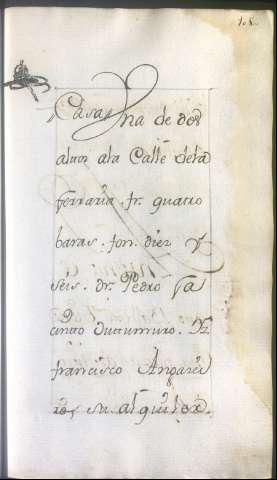 Casa Una de dos
altos ala Calle dela
ferraria. fr. quatro
baras. fon. diez y
seis. dr. Pedro Ja
cinto Dutumuro. Yz
francisco Angara
su alquiler.